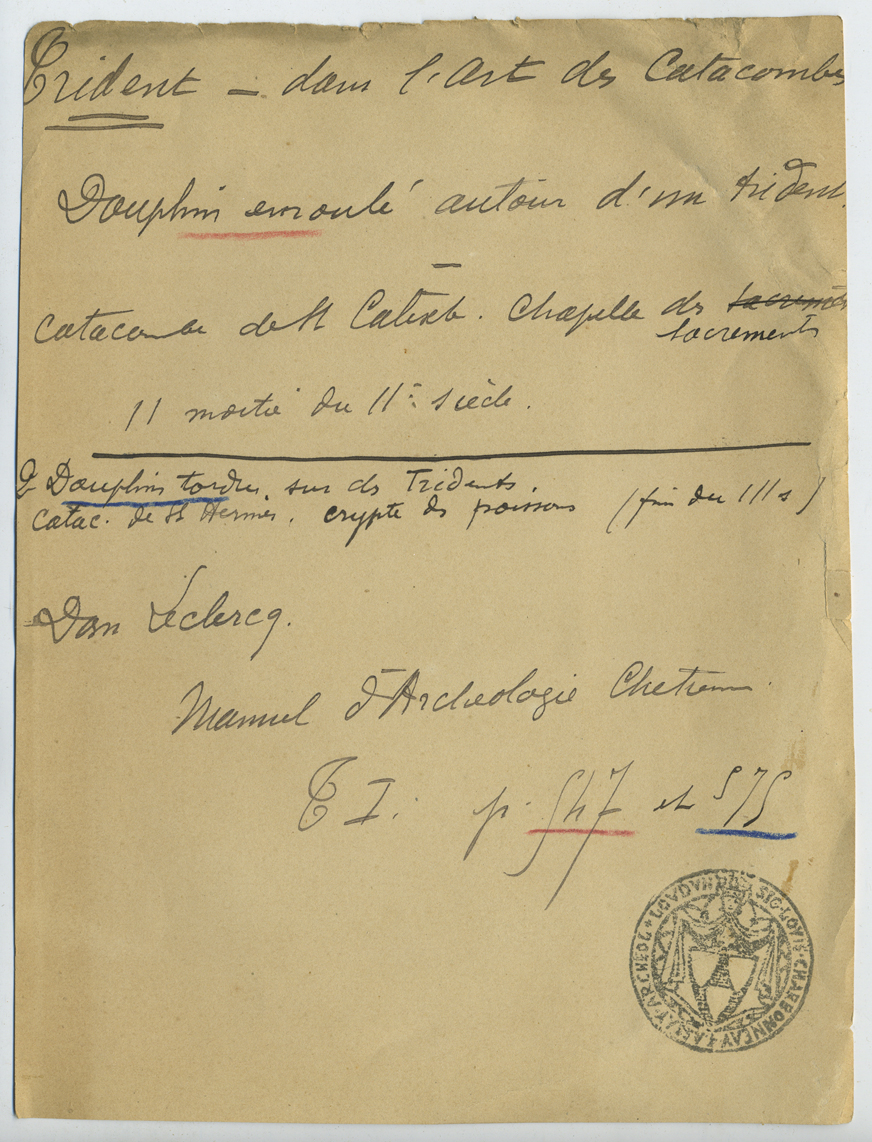 Trident - dans l'Art des Catacombes
Dauphin enroulé autour d'un trident.
-
Catacombe de St Calixte. Chapelle des
sacrements
II moitié du IIe siècle.
2 Dauphins tordus sur des Tridents.
Catac. de St Hermès. crypte des poissons (fin du IIIs)
Dom Leclercq.
Manuel d'Archeologie Chretienne.
T I. p. 547 et 575
LOVDVN SIG·LOVIS·CHARBONNEAV·LASSAY·ARCHEOL